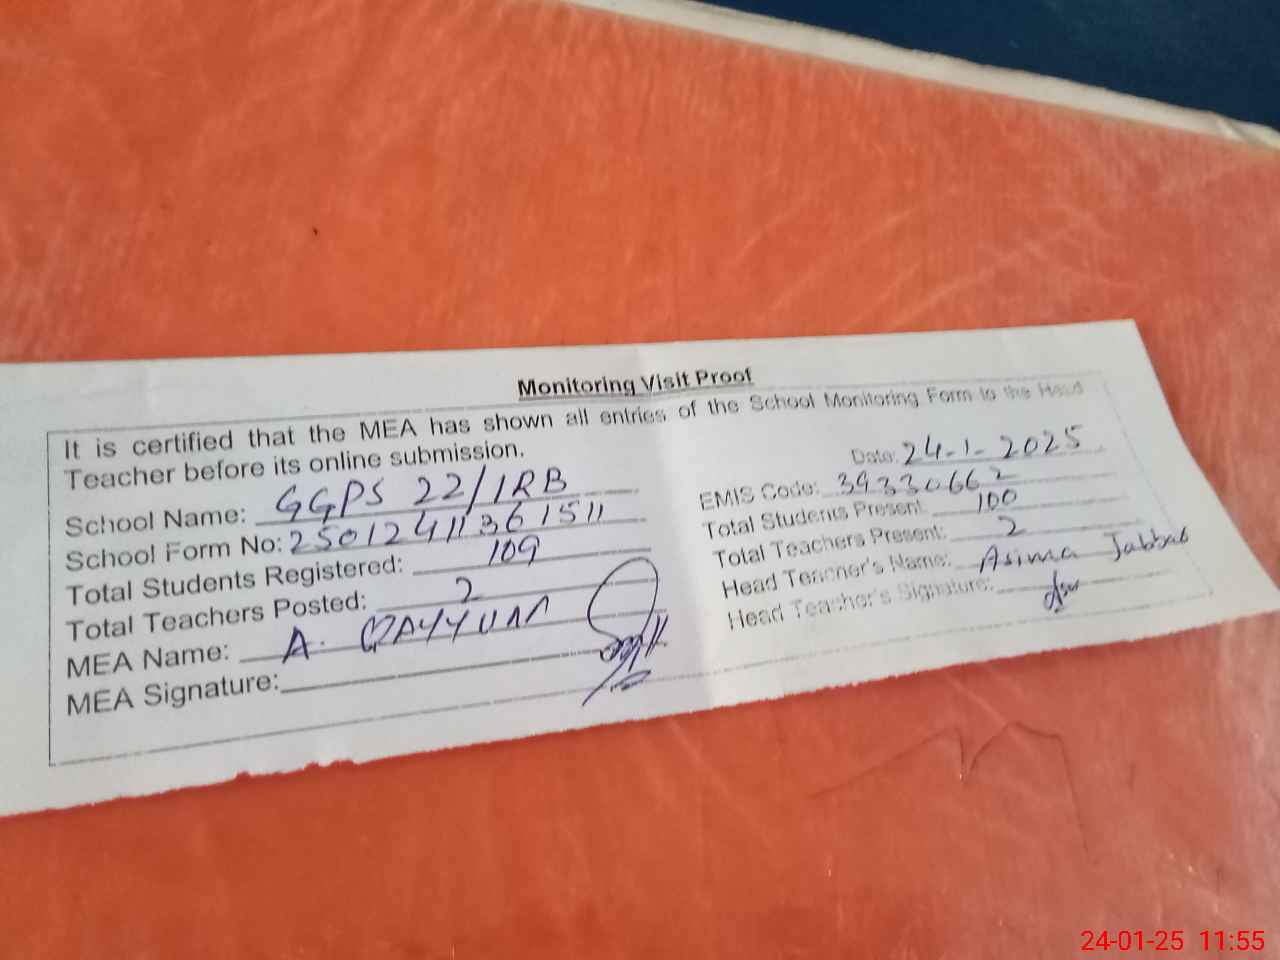 Monitoring Visit Proof
It is certified that the MEA has shown all entries of the School Monitoring Form to the Head
Teacher before its online submission.
Date: 24-1-2025
School Name: GGPS 22/1RB
EMIS Code: 39330662
School Form No: 2501241136 1511
Total Students Present: 100
Total Students Registered: 109
Total Teachers Present: 2
Total Teachers Posted: 2
Head Teacher's Name: Asima Jabbar
MEA Name: A. QAYYUM
Head Teacher's Signature:
MEA Signature:
24-01-25 11:55